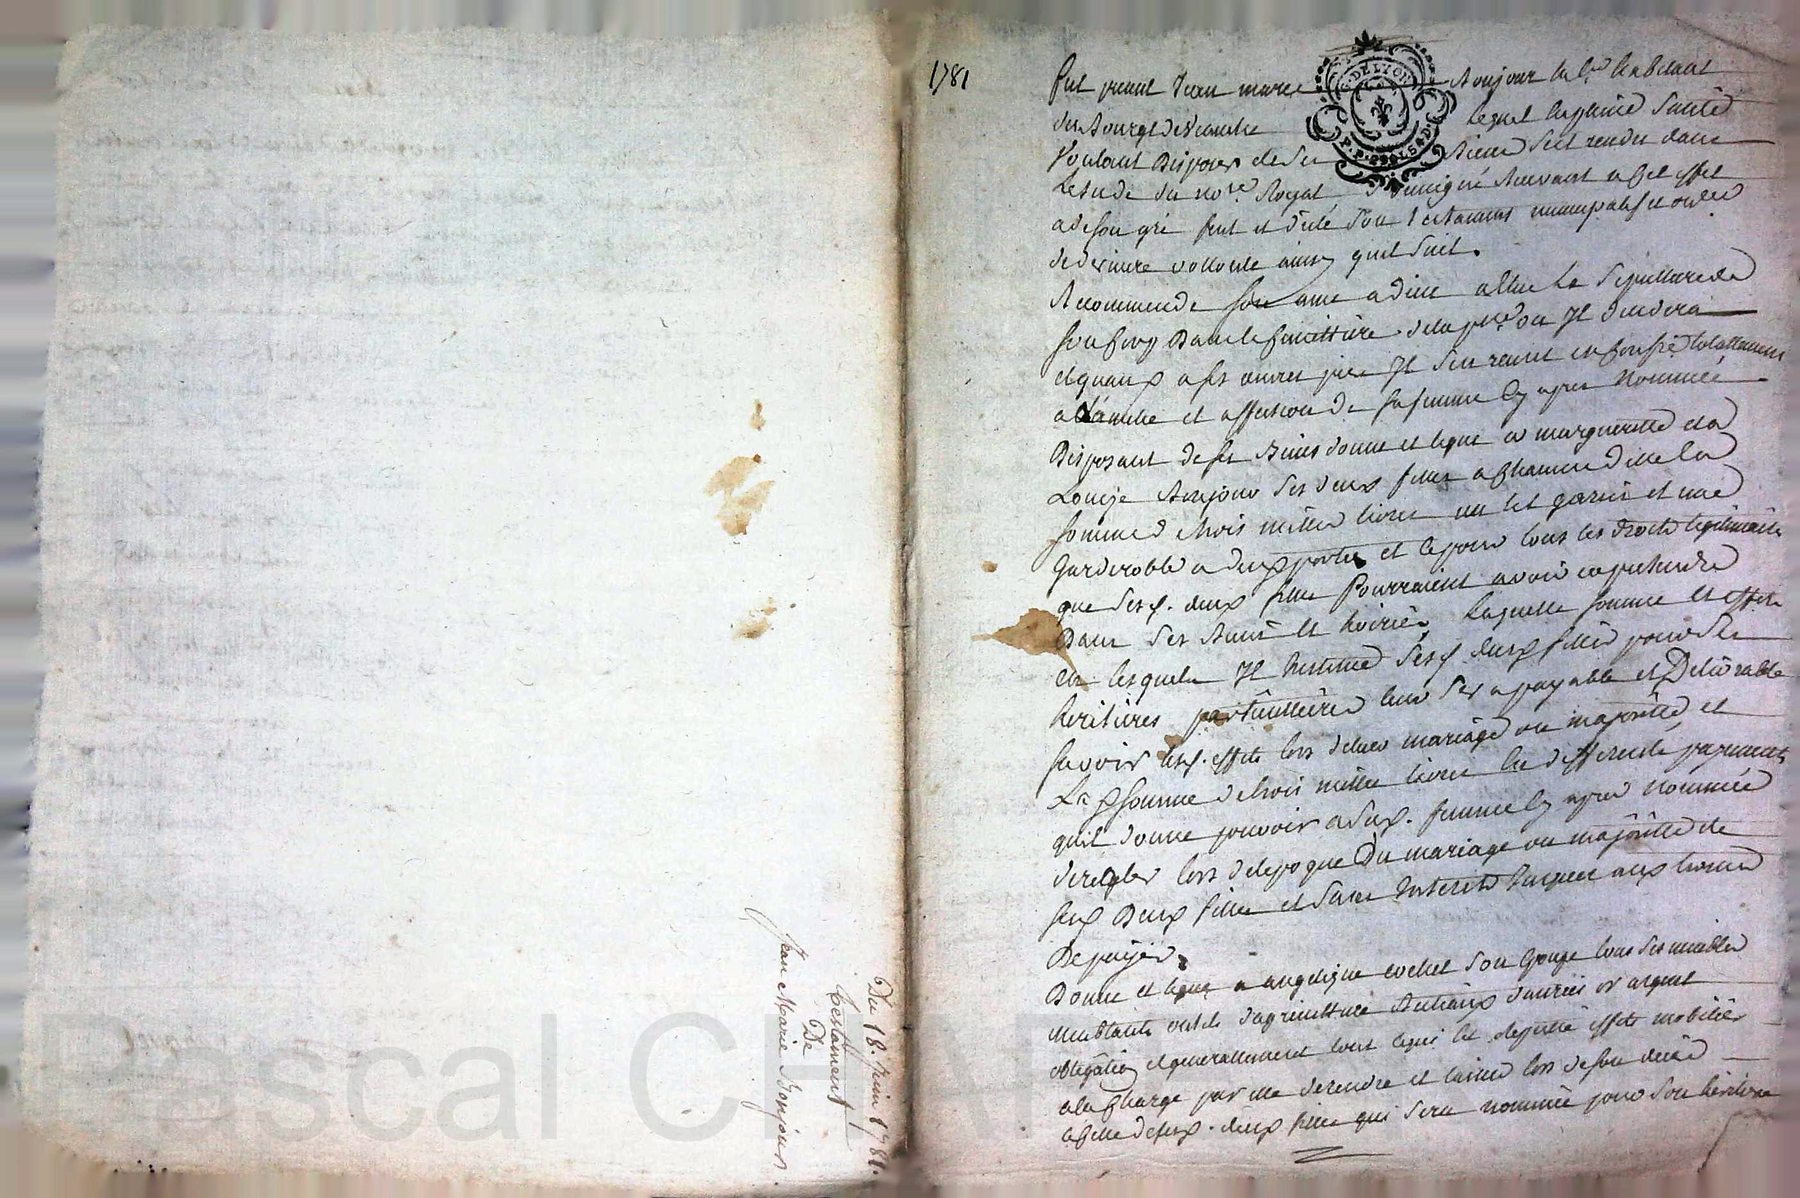 Du 18. Juin 1781.
Testament
De
Jean Marie Bonjour
Pascal CHA
1781
G. DE LYON
fut present Jean marie Bonjour habitant
du Bourg de lequel en pleine Santé
Voulant Disposer de ses Biens s'est rendu dans
Letude du no.re Royal soussigné Recevant a Cet effet
a de son gré fait et dicté son testament nuncupatif et ordce
de derniere vollonté ainsy quil suit.
Recommende son ame a dieu eslue La Sepulture de
son Corp Dans le Cimettiere dela p.sse ou Jl decedera
et quant a ses œuvres pies Jl s'en remet et Confie totallement
a L'amitié et affection de sa femme Cy apres Nommée
Disposant de ses Biens donne et legue a marguerite et a
Louise Bonjour ses deux filles a Chacune d'elle la
somme de trois mille livres un lit garni et une
Garderobbe a deux portes et ce pour tous les Droits legitimaires
que sesd. deux filles Pourraient avoir et pretendre
Dans ses Biens et hoirie, laquelle somme et effets
en lesquels Jl Institue sesd. deux filles pour ses
heritieres particullieres leur sera payable et Delivrable
savoir lesd. effets lors deleur mariage ou majorité et
La d. somme de trois mille livres en differents payements
quil donne pouvoir a sad. femme Cy apres nommée
de regler lors delepoque Du mariage ou majorité de
sesd Deux filles et sans Interets jusques aux termes
De payer.
Donne et legue a angelique cochet son Epouse tous ses meubles
meublants outils d'agriculture Bestiaux danrées or argent
obligations et generallement tout ce qui est reputé effets mobilier
a la Charge par elle de rendre et laisser lors de son decès
a Celle de sesd. deux filles qui sera nommée pour son héritiere